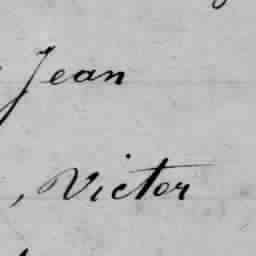 Jean
, Victor